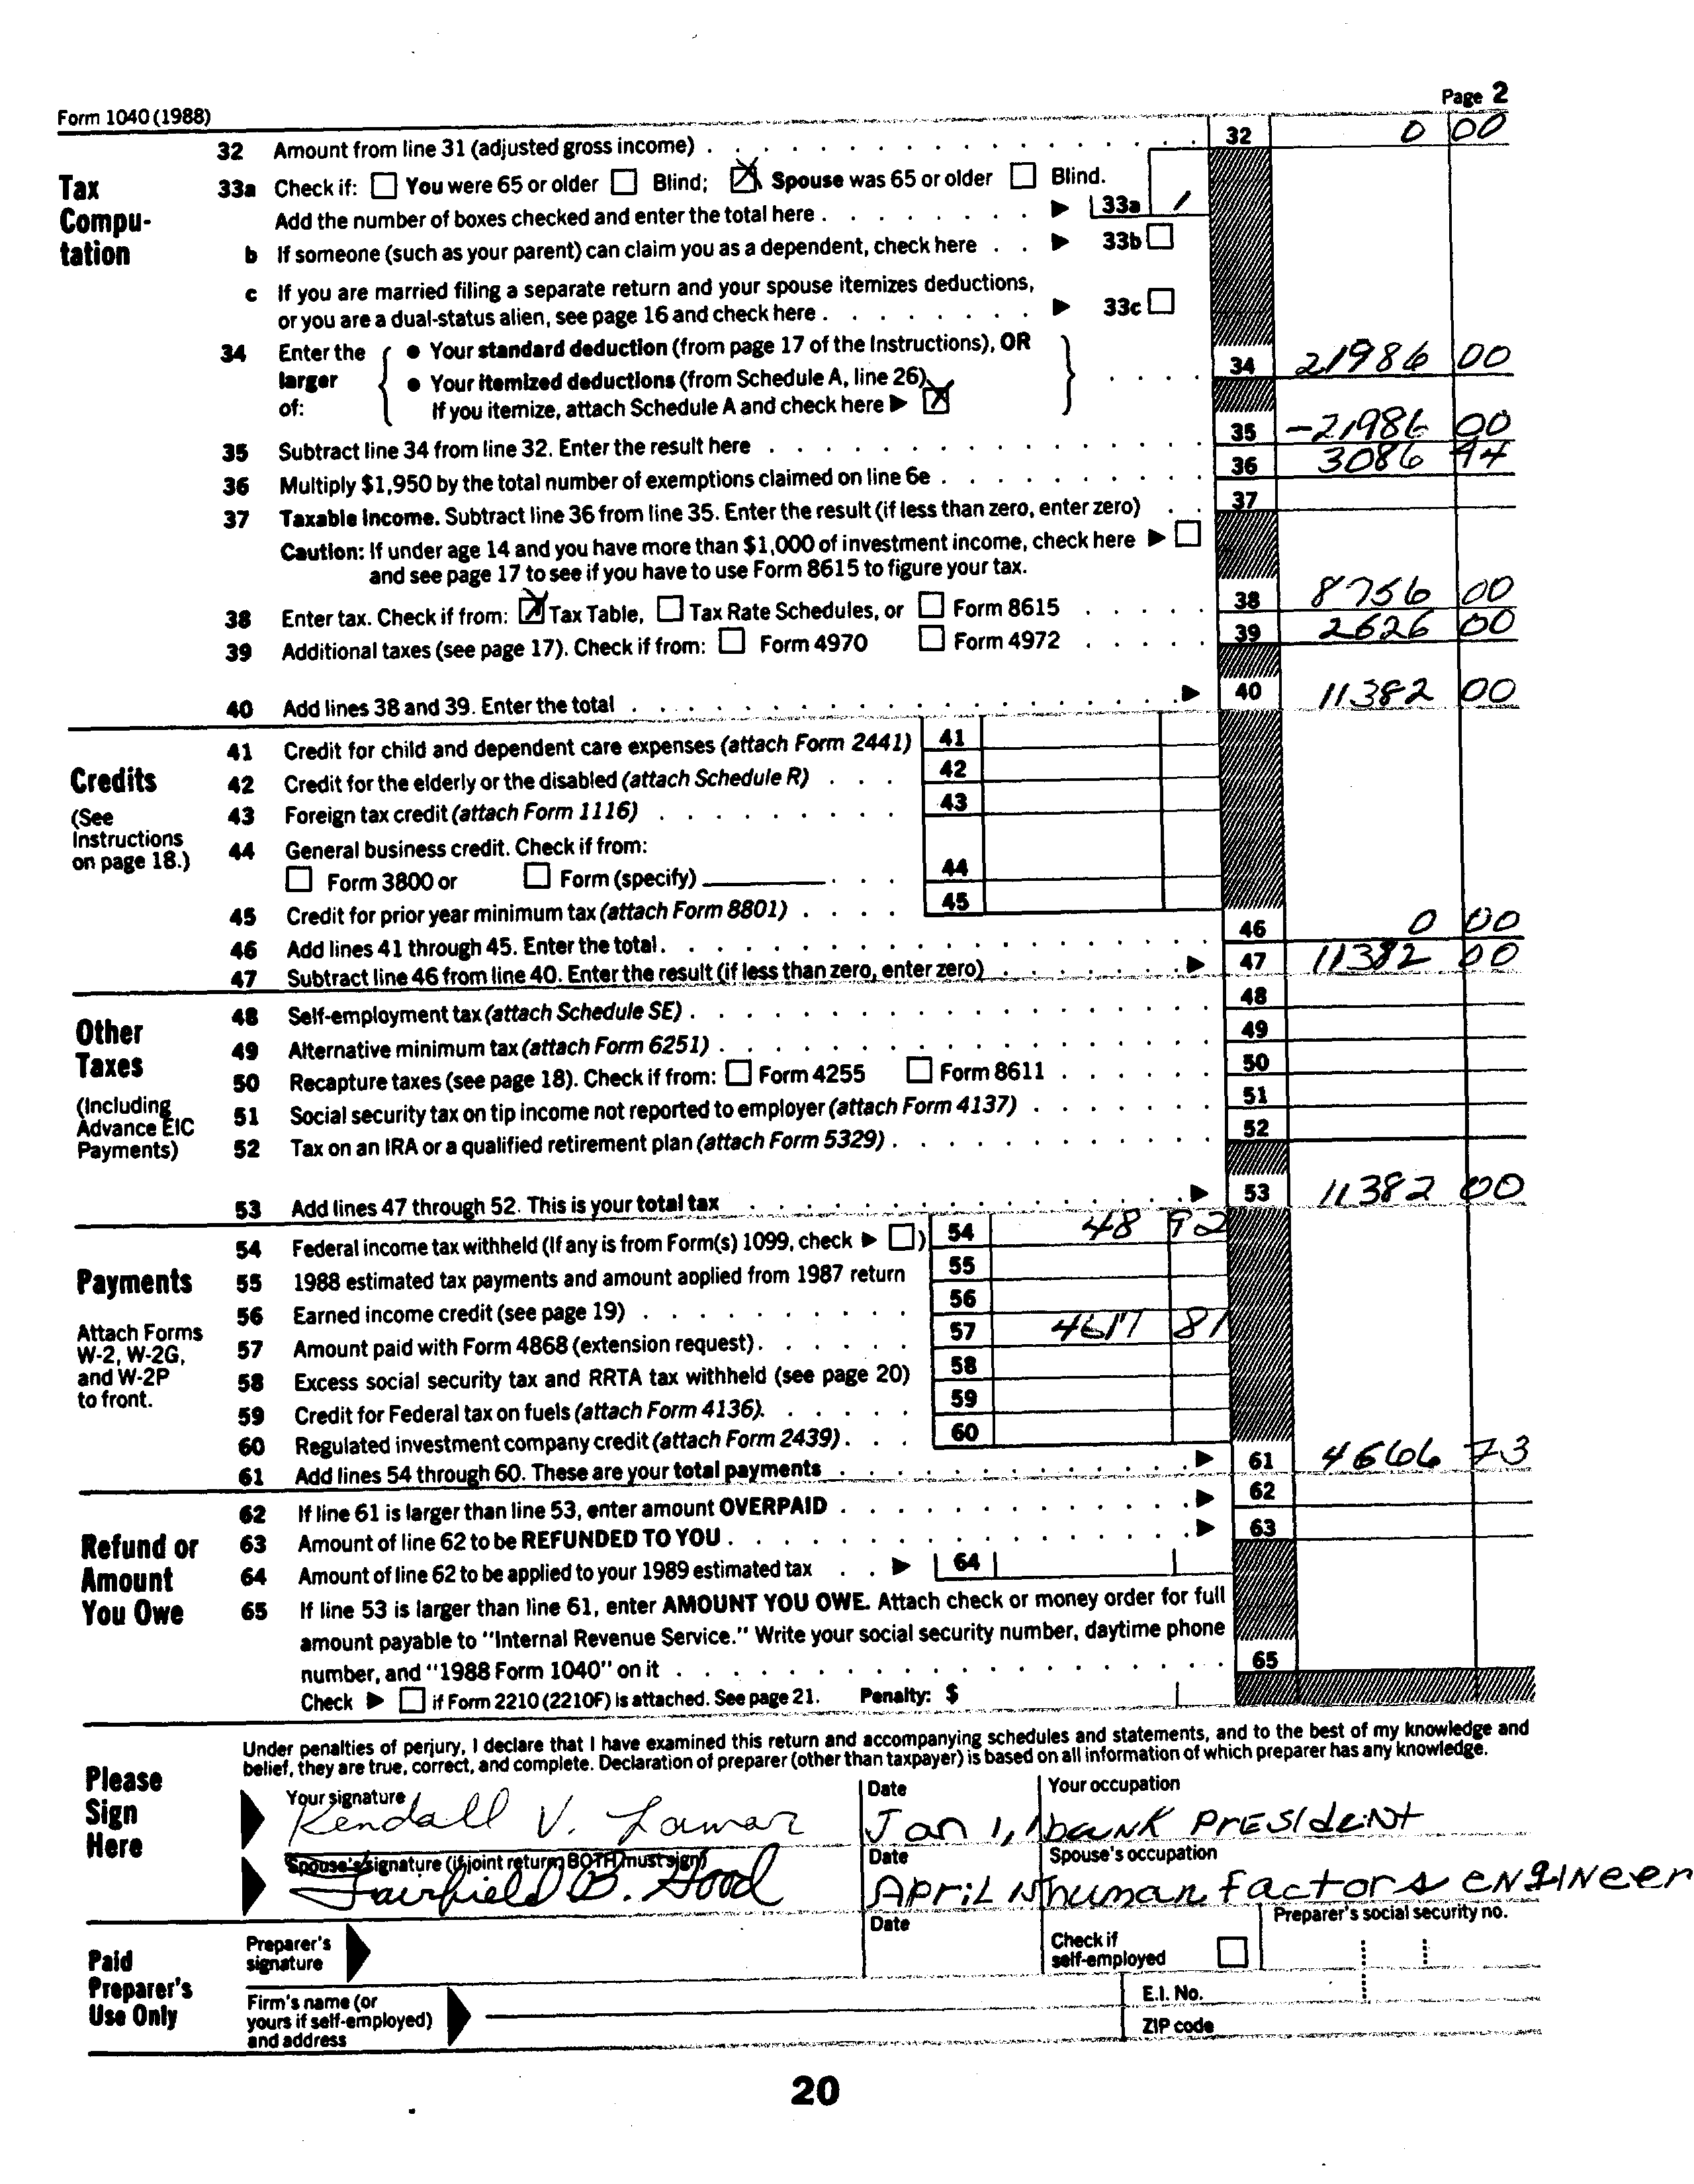 Form 1040 (1988)
Page 2
32 Amount from line 31 (adjusted gross income) . . . 32 0 00
Tax Compu- tation
33a Check if: You were 65 or older Blind; X Spouse was 65 or older Blind.
Add the number of boxes checked and enter the total here . . . 33a 1
b If someone (such as your parent) can claim you as a dependent, check here . . 33b
c If you are married filing a separate return and your spouse itemizes deductions,
or you are a dual-status alien, see page 16 and check here . . . 33c
34 Enter the larger of: { ● Your standard deduction (from page 17 of the Instructions), OR
● Your itemized deductions (from Schedule A, line 26) } . . . . 34 21986 00
If you itemize, attach Schedule A and check here ▶ X
35 Subtract line 34 from line 32. Enter the result here . . . 35 -21986 00
36 Multiply $1,950 by the total number of exemptions claimed on line 6e . . . 36 3086 94
37 Taxable Income. Subtract line 36 from line 35. Enter the result (if less than zero, enter zero) . . 37
Caution: If under age 14 and you have more than $1,000 of investment income, check here ▶
and see page 17 to see if you have to use Form 8615 to figure your tax.
38 Enter tax. Check if from: X Tax Table, Tax Rate Schedules, or Form 8615 . . . . . 38 8756 00
39 Additional taxes (see page 17). Check if from: Form 4970 Form 4972 . . . . . 39 2626 00
40 Add lines 38 and 39. Enter the total . . . ▶ 40 11382 00
Credits
(See Instructions on page 18.)
41 Credit for child and dependent care expenses (attach Form 2441) 41
42 Credit for the elderly or the disabled (attach Schedule R) . . . 42
43 Foreign tax credit (attach Form 1116) . . . 43
44 General business credit. Check if from:
Form 3800 or Form (specify) . . . 44
45 Credit for prior year minimum tax (attach Form 8801) . . . . 45
46 Add lines 41 through 45. Enter the total . . . 46 0 00
47 Subtract line 46 from line 40. Enter the result (if less than zero, enter zero) . . . ▶ 47 11382 00
Other Taxes
(Including Advance EIC Payments)
48 Self-employment tax (attach Schedule SE) . . . 48
49 Alternative minimum tax (attach Form 6251) . . . 49
50 Recapture taxes (see page 18). Check if from: Form 4255 Form 8611 . . . 50
51 Social security tax on tip income not reported to employer (attach Form 4137) . . . 51
52 Tax on an IRA or a qualified retirement plan (attach Form 5329) . . . 52
53 Add lines 47 through 52. This is your total tax . . . ▶ 53 11382 00
Payments
Attach Forms W-2, W-2G, and W-2P to front.
54 Federal income tax withheld (If any is from Form(s) 1099, check ▶ ) 54 48 92
55 1988 estimated tax payments and amount applied from 1987 return 55
56 Earned income credit (see page 19) . . . 56
57 Amount paid with Form 4868 (extension request) . . . 57 4617 81
58 Excess social security tax and RRTA tax withheld (see page 20) 58
59 Credit for Federal tax on fuels (attach Form 4136). . . . 59
60 Regulated investment company credit (attach Form 2439) . . . 60
61 Add lines 54 through 60. These are your total payments . . . ▶ 61 4666 73
Refund or Amount You Owe
62 If line 61 is larger than line 53, enter amount OVERPAID . . . ▶ 62
63 Amount of line 62 to be REFUNDED TO YOU . . . ▶ 63
64 Amount of line 62 to be applied to your 1989 estimated tax . . ▶ 64
65 If line 53 is larger than line 61, enter AMOUNT YOU OWE. Attach check or money order for full
amount payable to "Internal Revenue Service." Write your social security number, daytime phone
number, and "1988 Form 1040" on it . . . 65
Check ▶ if Form 2210 (2210F) is attached. See page 21. Penalty: $
Please Sign Here
Under penalties of perjury, I declare that I have examined this return and accompanying schedules and statements, and to the best of my knowledge and
belief, they are true, correct, and complete. Declaration of preparer (other than taxpayer) is based on all information of which preparer has any knowledge.
Your signature Date Your occupation
Kendall V. Lamar Jan 1, 1 bank PRESIdENT
Spouse's signature (if joint return, BOTH must sign) Date Spouse's occupation
Fairfield B. Hood April human factors ENGINeer
Paid Preparer's Use Only
Preparer's signature Date Check if self-employed Preparer's social security no.
Firm's name (or yours if self-employed) and address E.I. No.
ZIP code
20